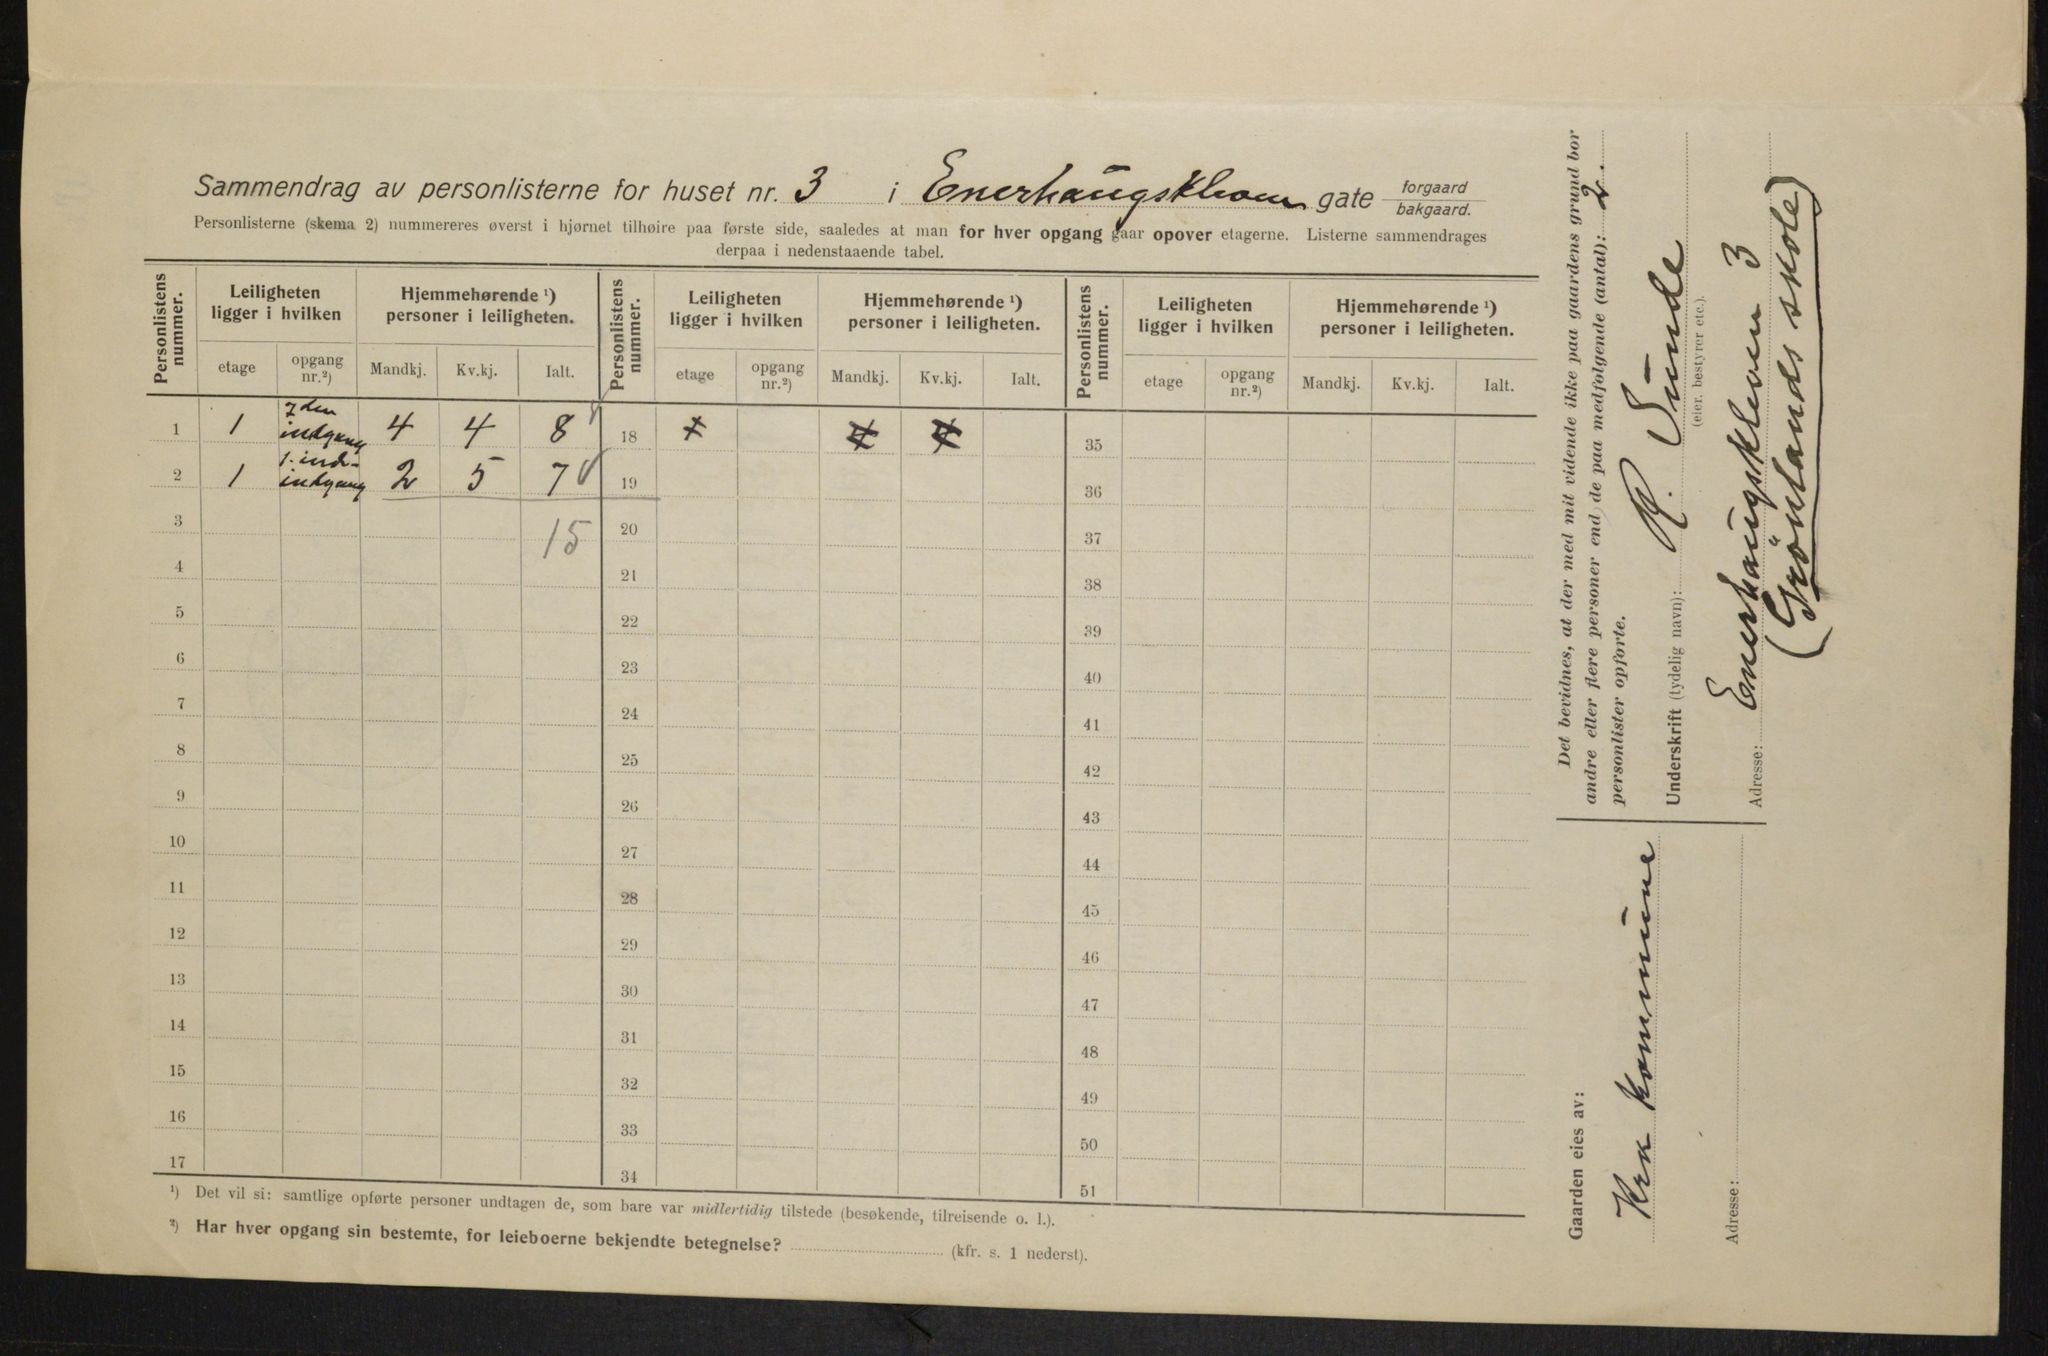 Sammendrag av personlisterne for huset nr. 3 i Enerhaugskleven gate forgaard bakgaard.
Personlisterne (skema 2) nummereres øverst i hjørnet tilhøire paa første side, saaledes at man for hver opgang gaar opover etagerne. Listerne sammendrages
derpaa i nedenstaaende tabel.
Personlistens nummer. Leiligheten ligger i hvilken Hjemmehørende ¹) personer i leiligheten. Personlistens nummer. Leiligheten ligger i hvilken Hjemmehørende ¹) personer i leiligheten. Personlistens nummer. Leiligheten ligger i hvilken Hjemmehørende ¹) personer i leiligheten.
etage opgang nr.²) Mandkj. Kv.kj. Ialt. etage opgang nr.²) Mandkj. Kv.kj. Ialt. etage opgang nr.²) Mandkj. Kv.kj. Ialt.
1 1 indgang 4 4 8 18 35
2 1 1. ind- indgang 2 5 7 19 36
3 15 20 37
4 21 38
5 22 39
6 23 40
7 24 41
8 25 42
9 26 43
10 27 44
11 28 45
12 29 46
13 30 47
14 31 48
15 32 49
16 33 50
17 34 51
¹) Det vil si: samtlige opførte personer undtagen de, som bare var midlertidig tilstede (besøkende, tilreisende o. l.).
²) Har hver opgang sin bestemte, for leieboerne bekjendte betegnelse? (kfr. s. 1 nederst).
Det bevidnes, at der med mit vidende ikke paa gaardens grund bor
andre eller flere personer end de paa medfolgende (antal): 2.
personlister opforte.
Underskrift (tydelig navn): R. Sunde
(eier, bestyrer etc.).
Adresse: Enerhaugskleven 3
(Grönlands skole)
Gaarden eies av:
Kra kommune
Adresse: